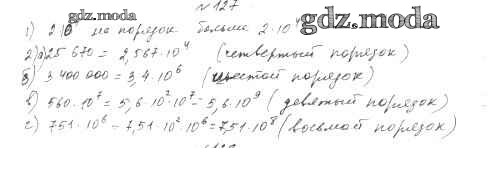 № 127
gdz.moda
gdz.moda
1) 2,10 на порядок больше 2·10⁴
2) а) 25 670 = 2,567·10⁴ (четвертый порядок)
б) 3 400 000 = 3,4·10⁶ (шестой порядок)
в) 560·10⁷ = 5,6·10²·10⁷ = 5,6·10⁹ (девятый порядок)
г) 751·10⁶ = 7,51·10²·10⁶ = 7,51·10⁸ (восьмой порядок)